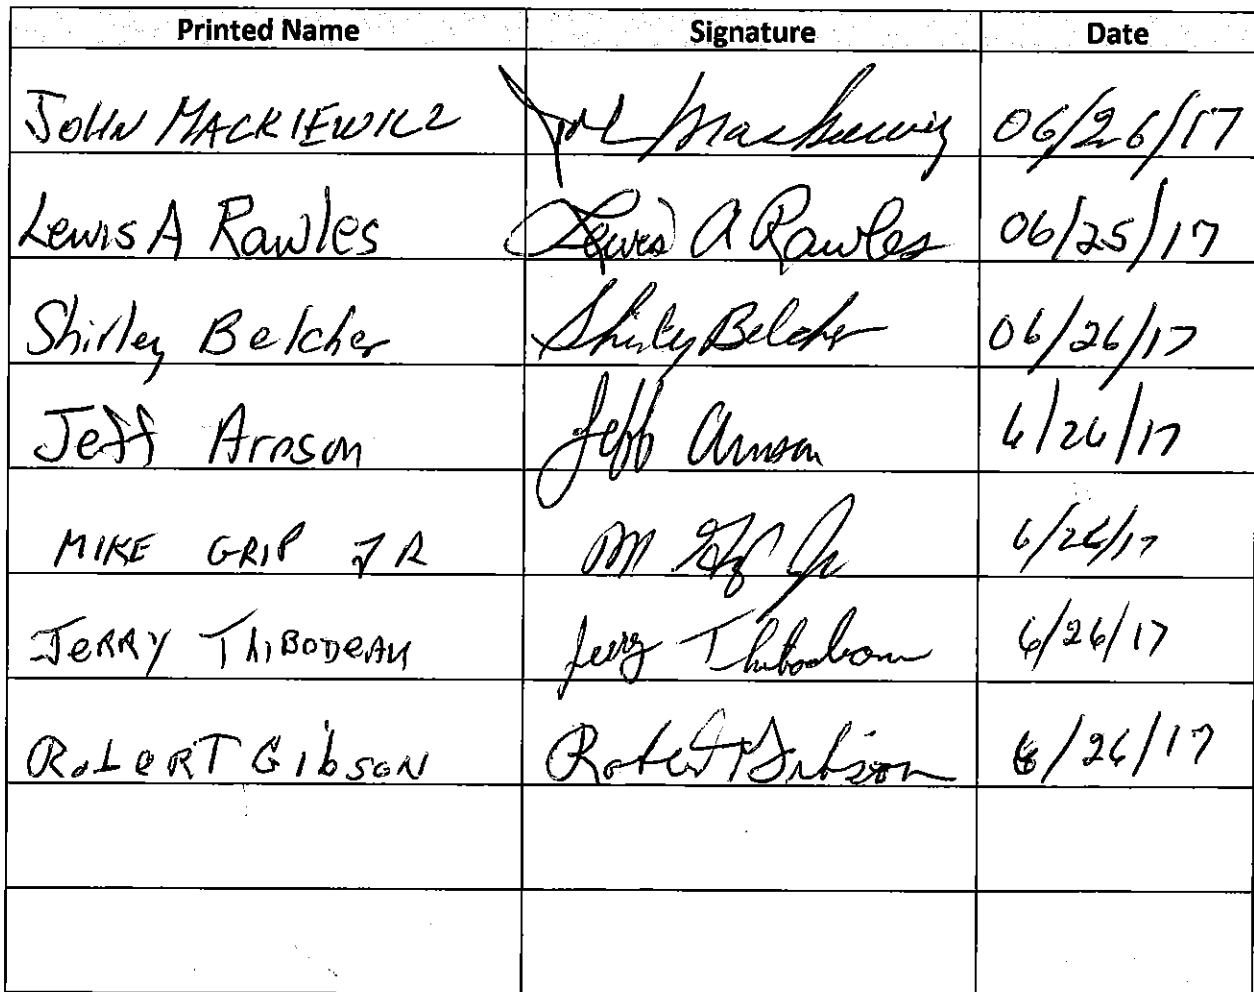 Printed Name Signature Date
JOHN MACKIEWICZ John Mackiewicz 06/26/17
Lewis A Rawles Lewis A Rawles 06/25/17
Shirley Belcher Shirley Belcher 06/26/17
Jeff Arnson Jeff Arnson 6/26/17
MIKE GRIP JR M Grip Jr 6/26/17
JERRY THIBODEAU Jerry Thibodeau 6/26/17
ROBERT GIBSON Robert Gibson 6/26/17